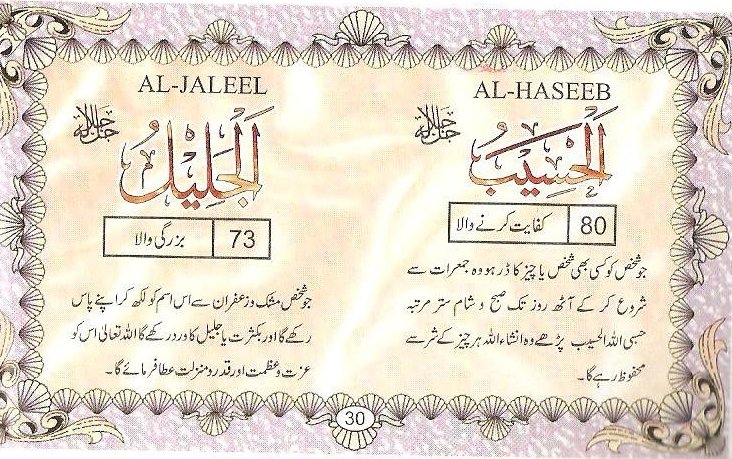 AL-HASEEB
جل جلالہ
اَلْحَسِيْبُ
80 کفایت کرنے والا
جو شخص کو کسی بھی شخص یا چیز کا ڈر ہو وہ جمعرات سے
شروع کر کے آٹھ روز تک صبح و شام ستر مرتبہ
حسبی اللہ الحسیب پڑھے وہ انشاء اللہ ہر چیز کے شر سے
محفوظ رہے گا۔
AL-JALEEL
جل جلالہ
اَلْجَلِيْلُ
73 بزرگی والا
جو شخص مشک و زعفران سے اس اسم کو لکھ کر اپنے پاس
رکھے گا اور بکثرت یا جلیل کا ورد رکھے گا اللہ تعالیٰ اس کو
عزت و عظمت اور قدر و منزلت عطا فرمائے گا۔
30